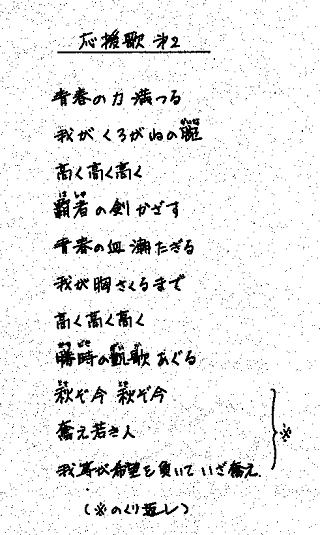 応援歌 オ2
青春の力満つる
我がくろがねの腕
高く高く高く
覇者の剣かざす
青春の血潮たぎる
我が胸さくるまで
高く高く高く
勝時の凱歌あぐる
秋ぞ今 秋ぞ今
奮え若き人
我等が希望を負いていざ奮え
※
(※のくり返し)